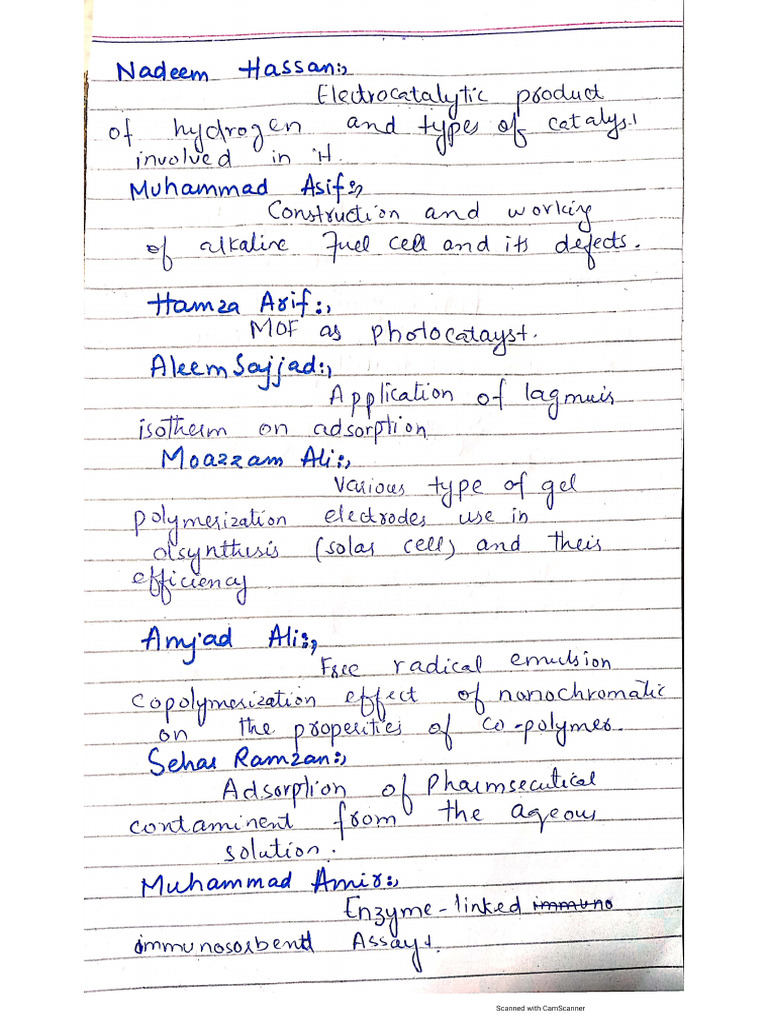 Nadeem Hassan:,
Electrocatalytic product
of hydrogen and types of catalyst
involved in H.
Muhammad Asif:,
Construction and working
of alkaline fuel cell and its defects.
Hamza Arif:,
MOF as photocatayst.
Aleem Sajjad:,
Application of lagmuir
isotherm on adsorption
Moazzam Ali:,
Various type of gel
polymerization electrodes use in
olsynthesis (solar cell) and their
efficiency
Amjad Ali:,
Free radical emulsion
copolymerization effect of nanochromatic
on the properities of co-polymer.
Sehar Ramzan:,
Adsorption of Pharmsecutical
contaminent from the ageous
solution.
Muhammad Amir:,
Enzyme-linked immuno
immunosorbent Assay.
Scanned with CamScanner